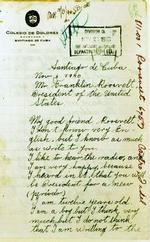 COLEGIO DE DOLORES
SANTIAGO DE CUBA
DIVISION OF
Santiago de Cuba
Nov 6 1940
Mr Franklin Roosvelt,
President of the United
States.
My good friend Roosvelt
I don't know very En-
glish, but I know as much
as write to you.
I like to hear the radio, and
I am very happy, because
I heard in it, that you will
be President for a new
(periodo)
I am twelve years old.
I am a boy but I think very
much but I do not think
that I am writting to the